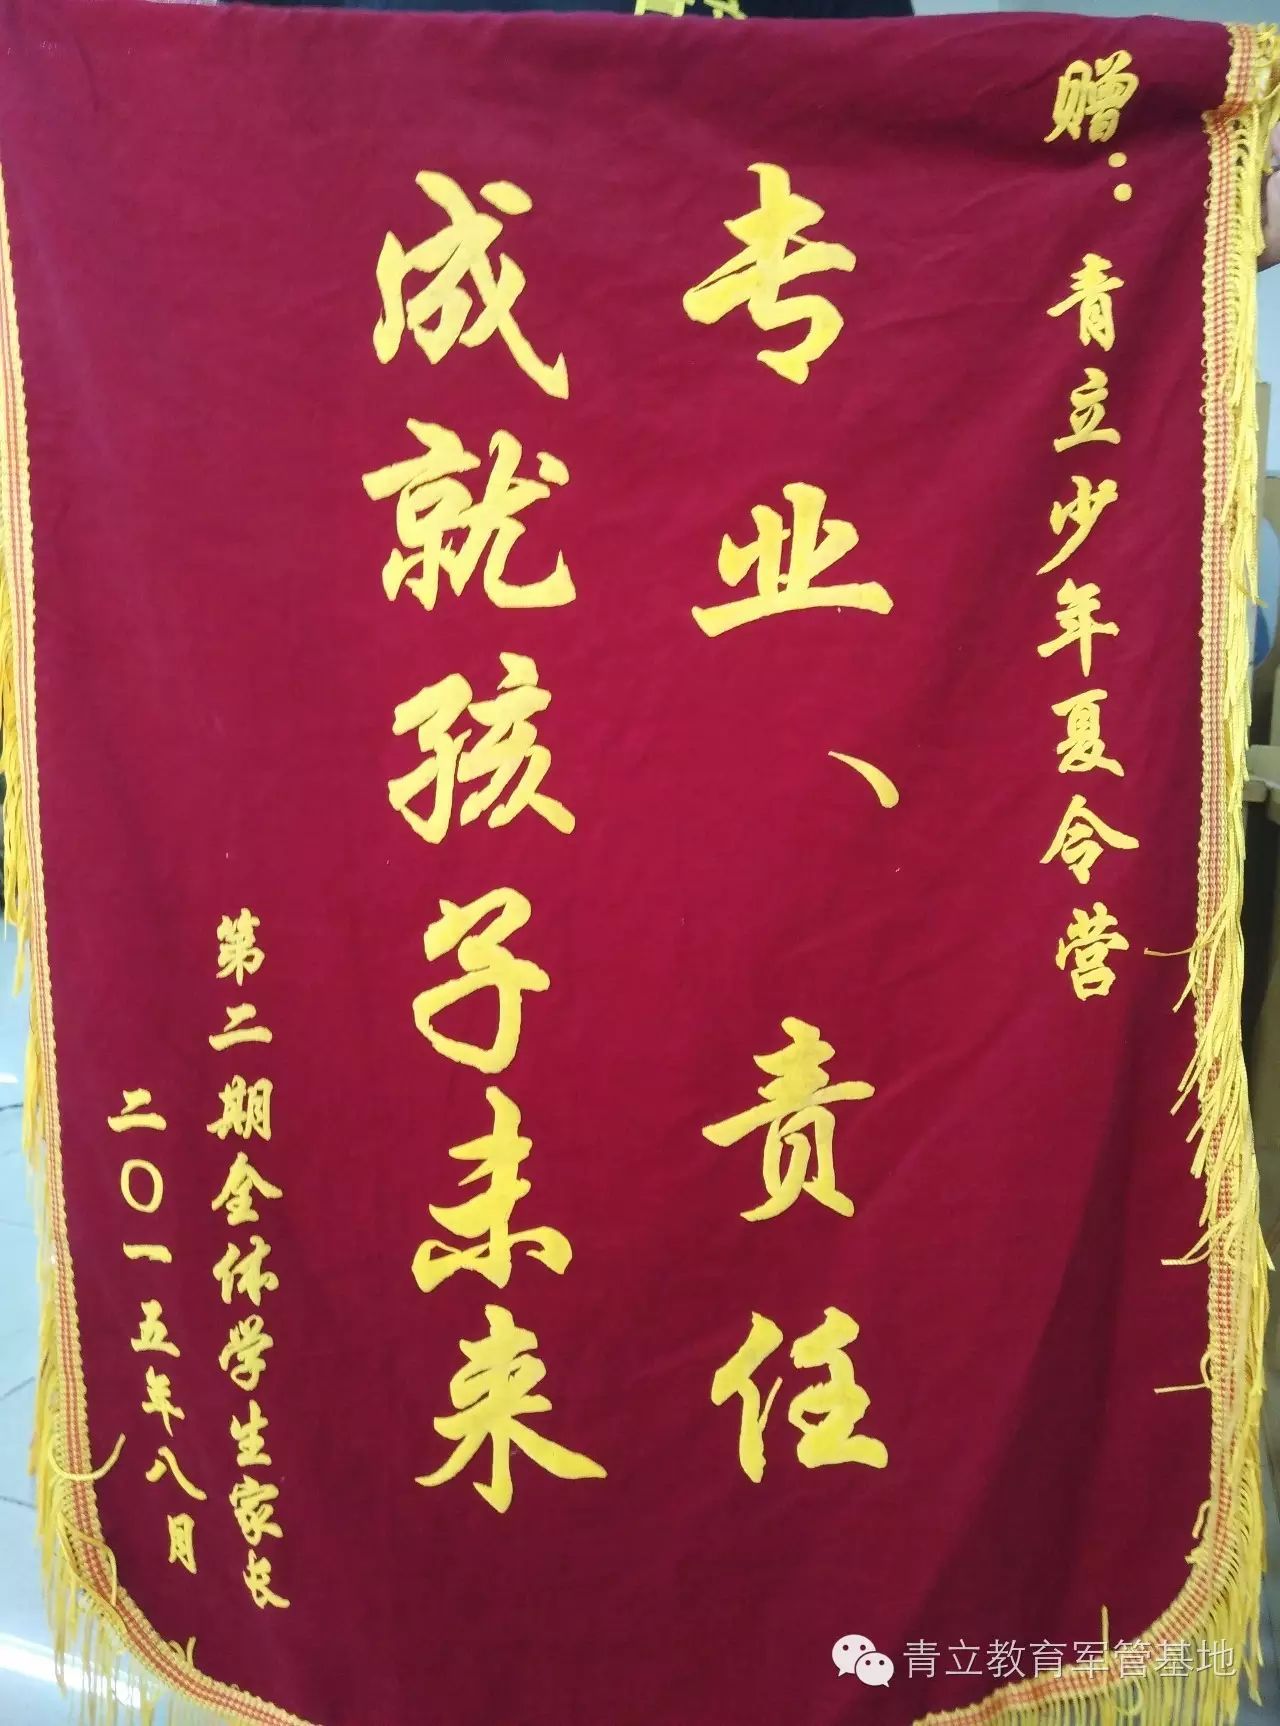 赠：青立少年夏令营
专业、责任
成就孩子未来
第二期全体学生家长
二〇一五年八月
青立教育军管基地